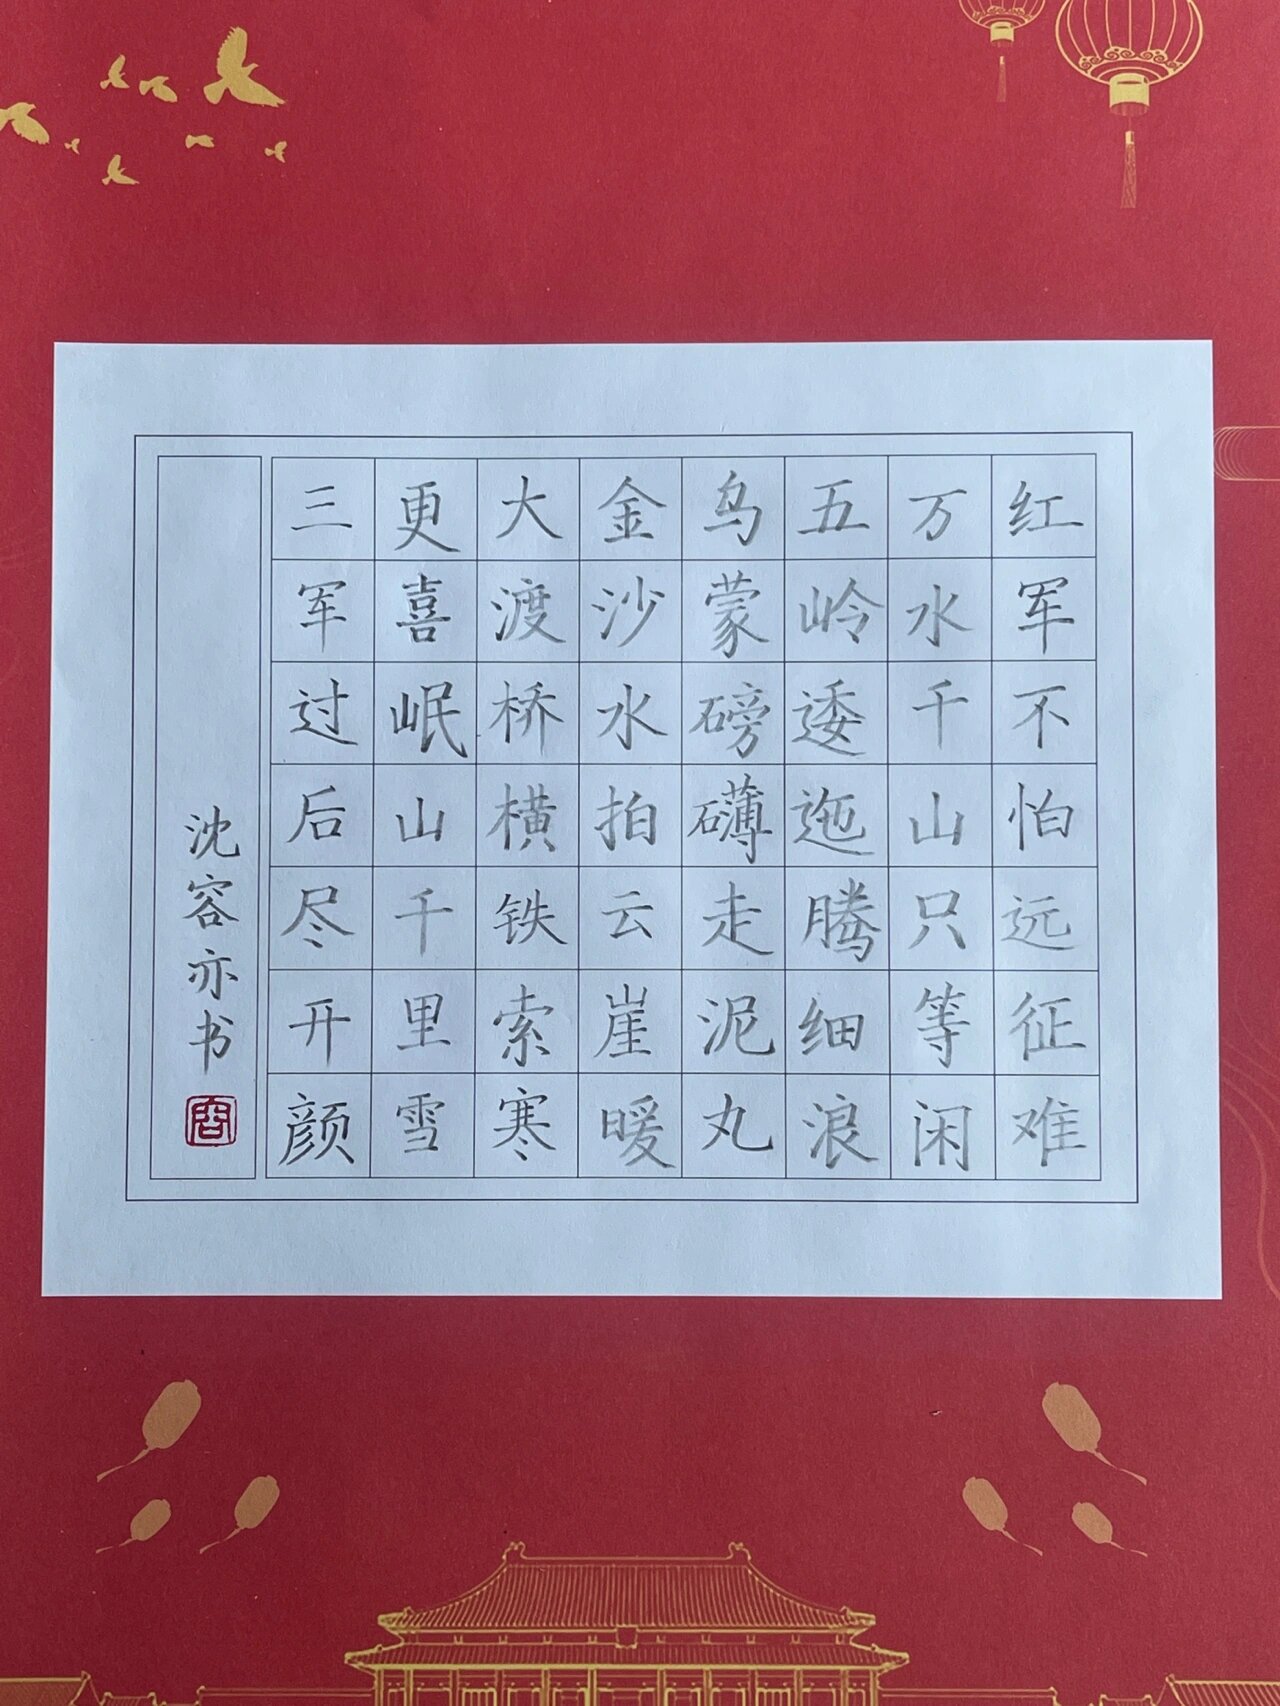 红军不怕远征难
万水千山只等闲
五岭逶迤腾细浪
乌蒙磅礴走泥丸
金沙水拍云崖暖
大渡桥横铁索寒
更喜岷山千里雪
三军过后尽开颜
沈容亦书
容